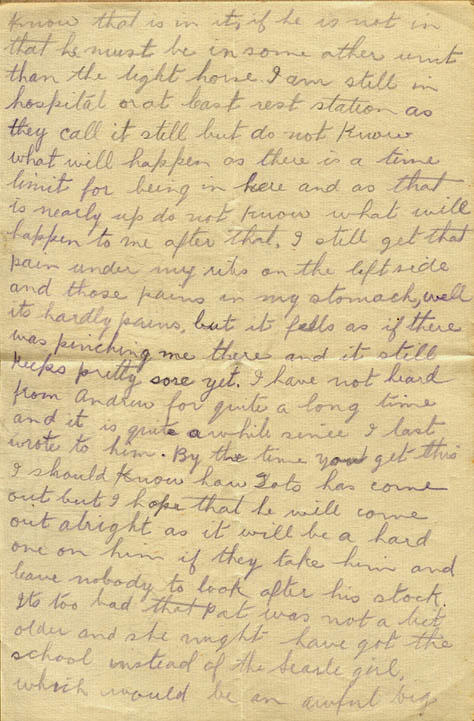 Know that is in it, if he is not in
that he must be in some other unit
than the light horse. I am still in
hospital or at least rest station as
they call it still but do not know
what will happen as there is a time
limit for being in here and as that
is nearly up do not know what will
happen to me after that. I still get that
pain under my ribs on the left side
and those pains in my stomach, well
its hardly pains, but it feels as if there
was pinching me there and it still
keeps pretty sore yet. I have not heard
from Andrew for quite a long time
and it is quite a while since I last
wrote to him. By the time you get this
I should know how has come
out but I hope that he will come
out alright as it will be a hard
one on him if they take him and
leave nobody to look after his stock.
Its too bad that Pat was not a bit
older and she might have got the
school instead of the Searle girl,
which would be an awful big